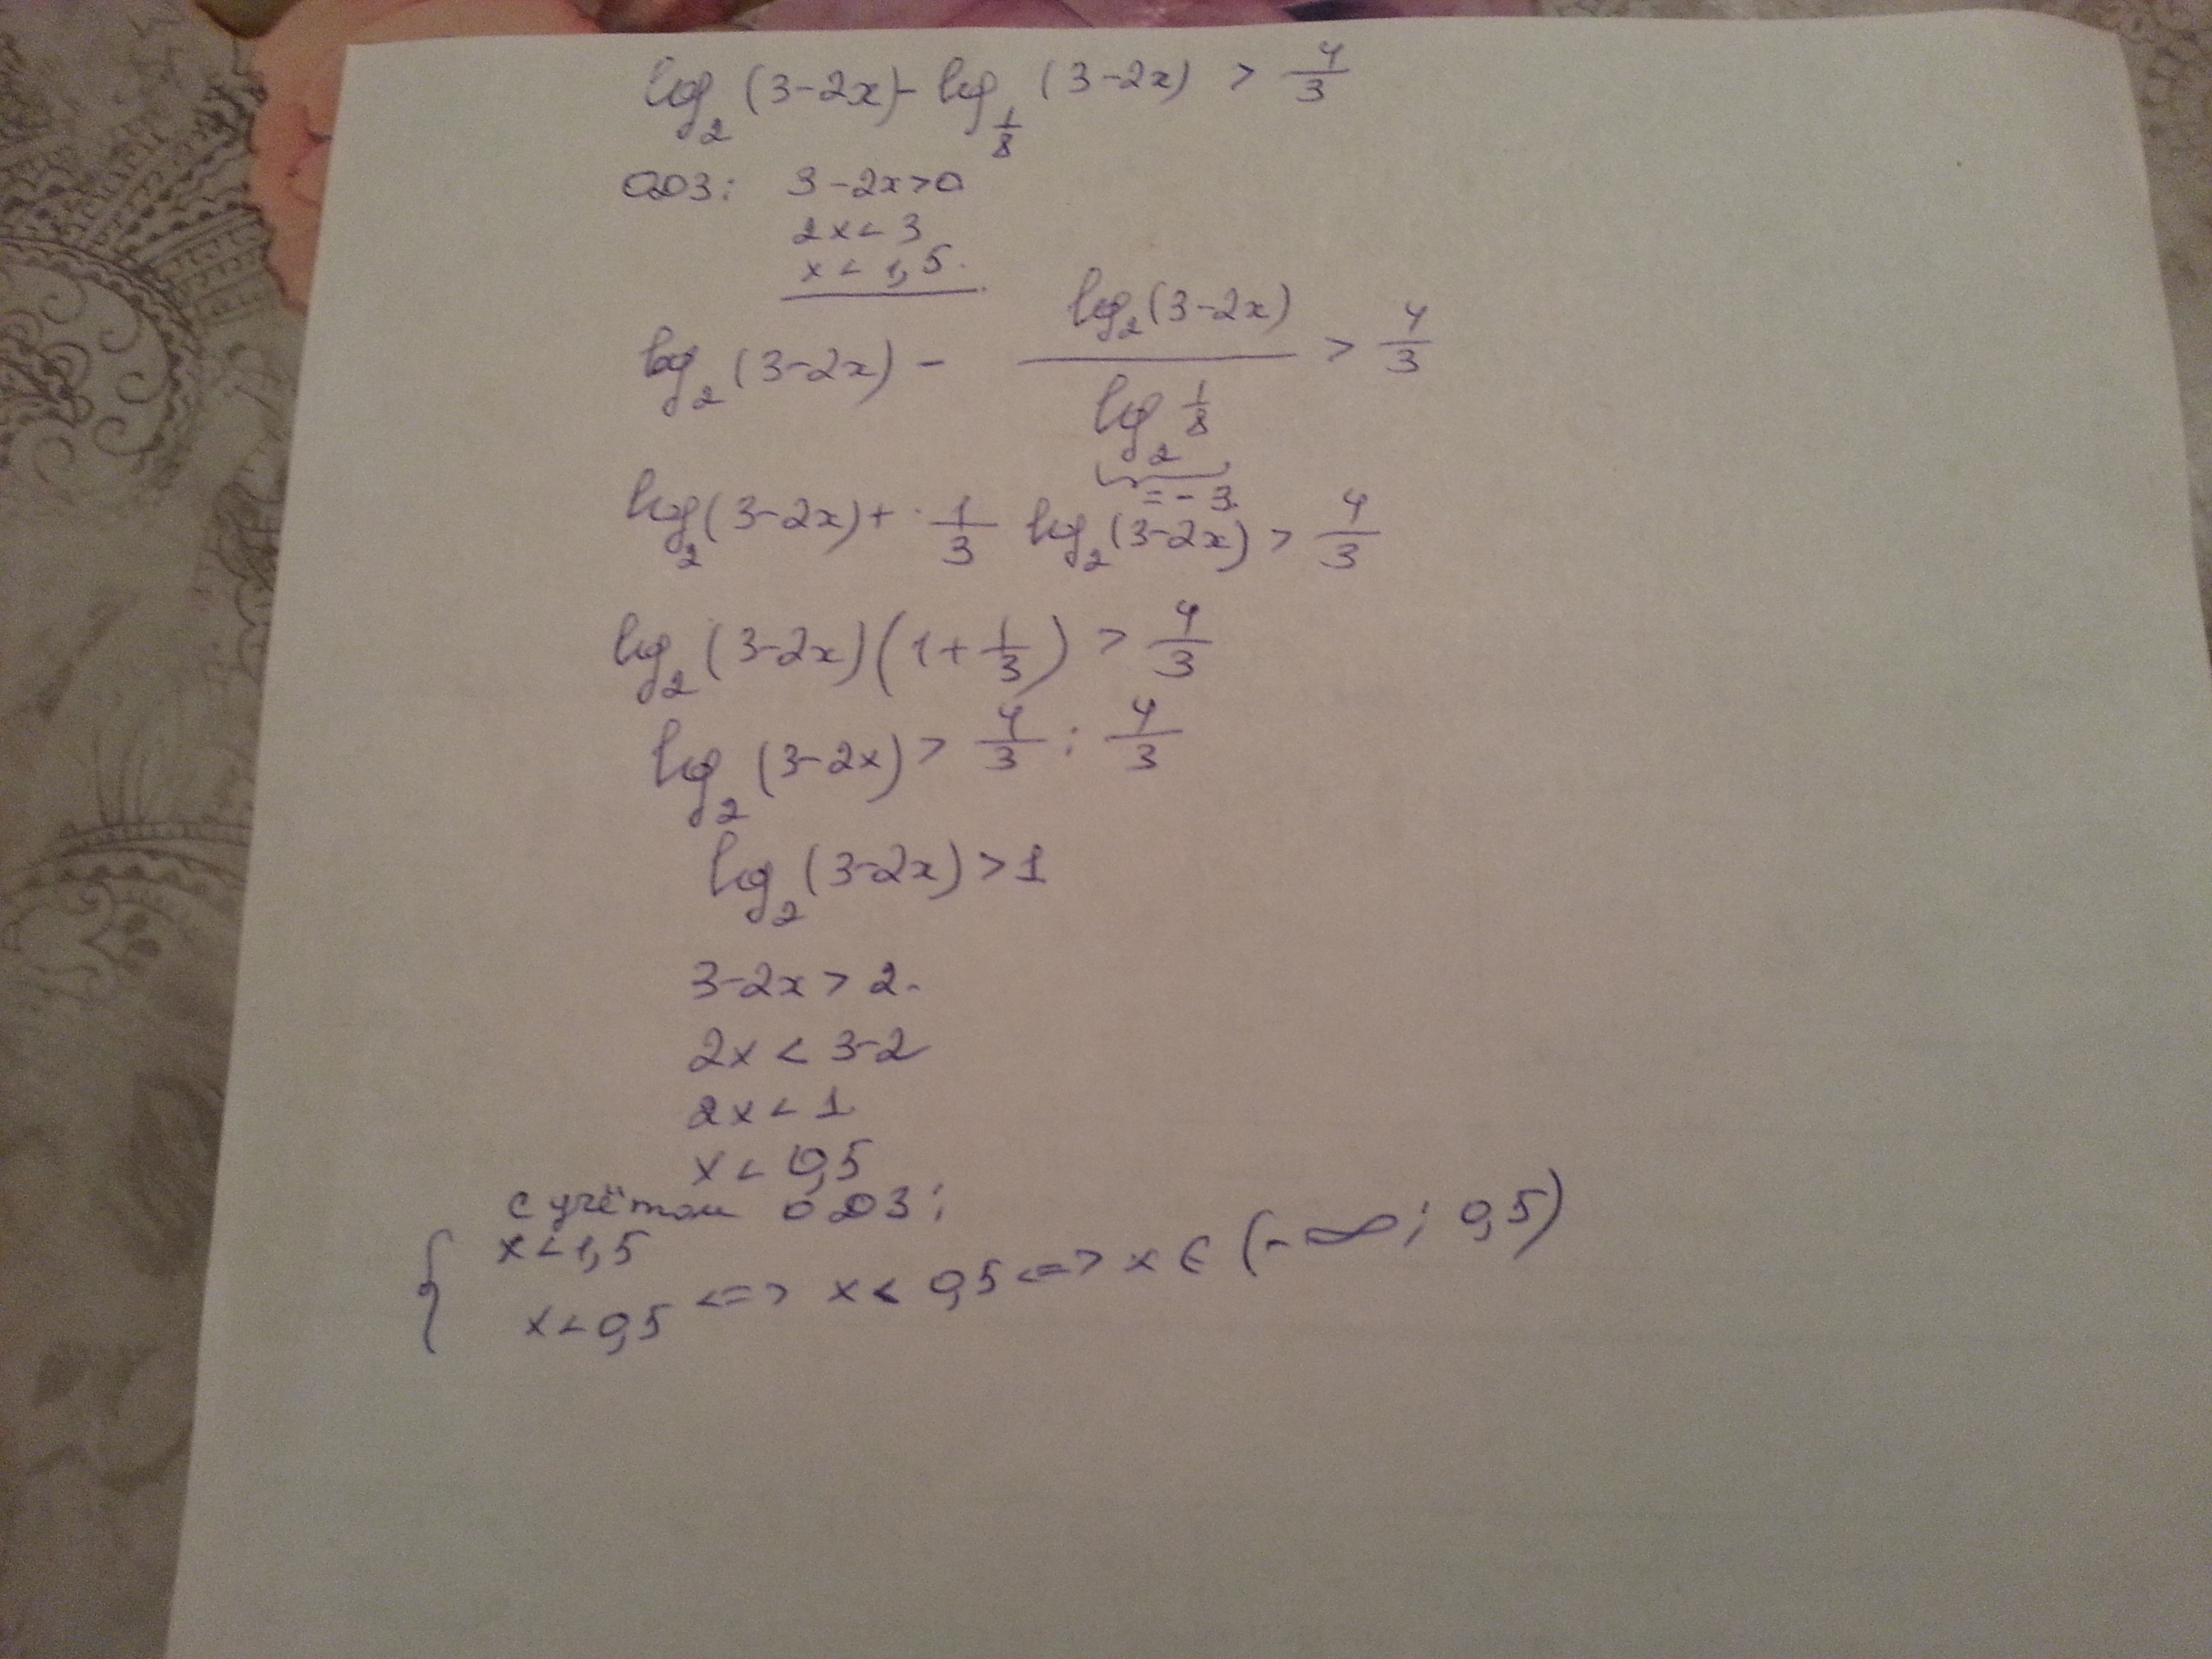 log₂(3-2x) - log_{1/8}(3-2x) > 4/3
ОДЗ: 3-2x>0
2x<3
x<1,5.
log₂(3-2x) - log₂(3-2x)/log₂ 1/8 > 4/3
=-3.
log₂(3-2x) + 1/3 log₂(3-2x) > 4/3
log₂(3-2x)(1+1/3) > 4/3
log₂(3-2x) > 4/3 : 4/3
log₂(3-2x) > 1
3-2x > 2.
2x < 3-2
2x < 1
x < 0,5
с учётом ОДЗ:
{ x<1,5
x<0,5 <=> x<0,5 <=> x ∈ (-∞; 0,5)